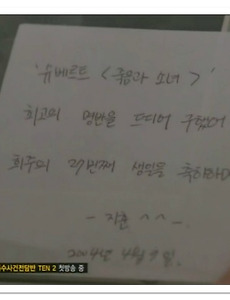 '슈베르트 <죽음과 소녀>'
최고의 명반을 드디어 구했어
희주의 27번째 생일을 축하하며
- 지훈 ^^ -
2004년 4월 9일.
수사건전담반 TEN 2 첫방송 중